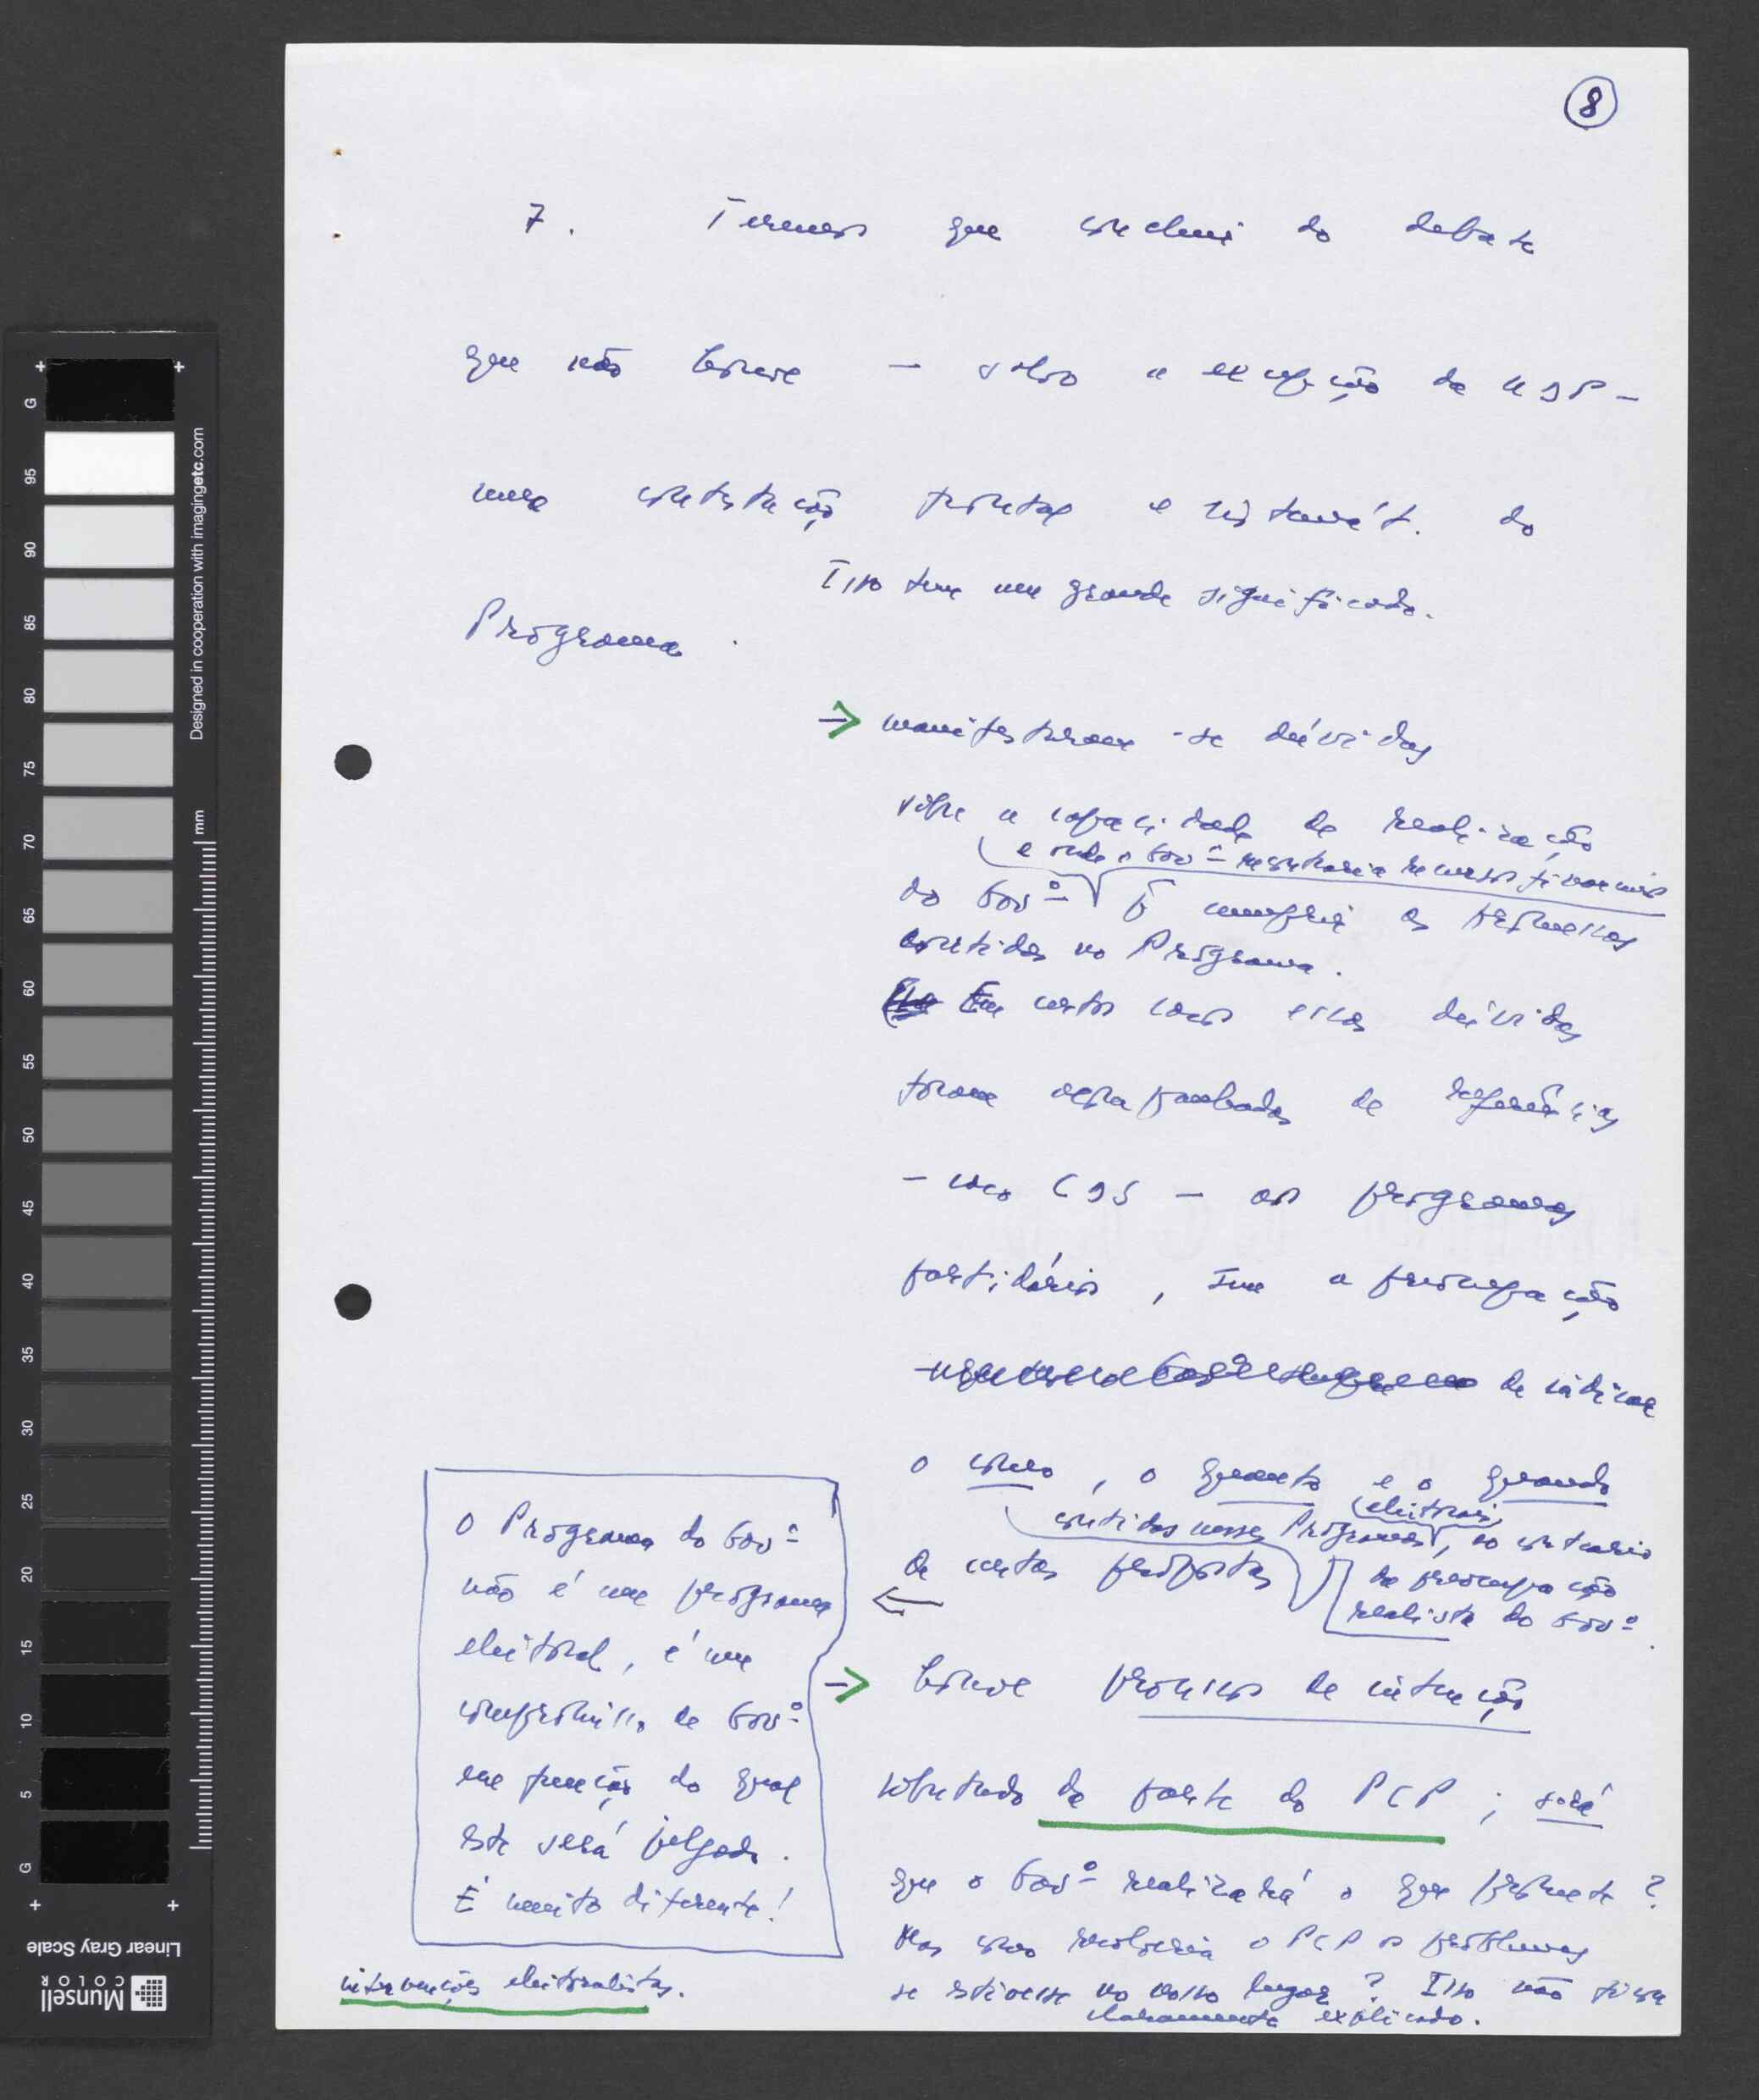 8
7. Teremos que concluir do debate
que não houve — salvo a excepção da UDP —
uma contestação frontal e sistemát. do
Isso tem um grande significado.
Programa.
→ manifestaram-se dúvidas
sobre a capacidade de realização
e onde o Govº encontraria recursos financeiros
do Govº p̃ cumprir as promessas
contidas no Programa.
Em certos casos essas dúvidas
foram acompanhadas de referências
— caso CDS — aos programas
partidários, sem a preocupação
de indicar
o como, o quanto e o quando
eleitorais
contidas nesses Programas, ao contrário
de certas propostas
da preocupação
realista do Govº.
→ houve processos de intenção
sobretudo da parte do PCP; será
que o Govº realizará o que promete?
Mas como resolveria o PCP os problemas
se estivesse no nosso lugar? Isso não ficou
claramente explicado.
O Programa do Govº
não é um programa
eleitoral, é um
compromisso de Govº
em função do qual
este será julgado.
É muito diferente!
←
intervenções eleitoralistas.
Designed in cooperation with imagingetc.com
mm
G
95
90
85
80
75
70
65
60
55
50
45
40
35
30
25
20
15
10
5
G
Linear Gray Scale
Munsell
COLOR